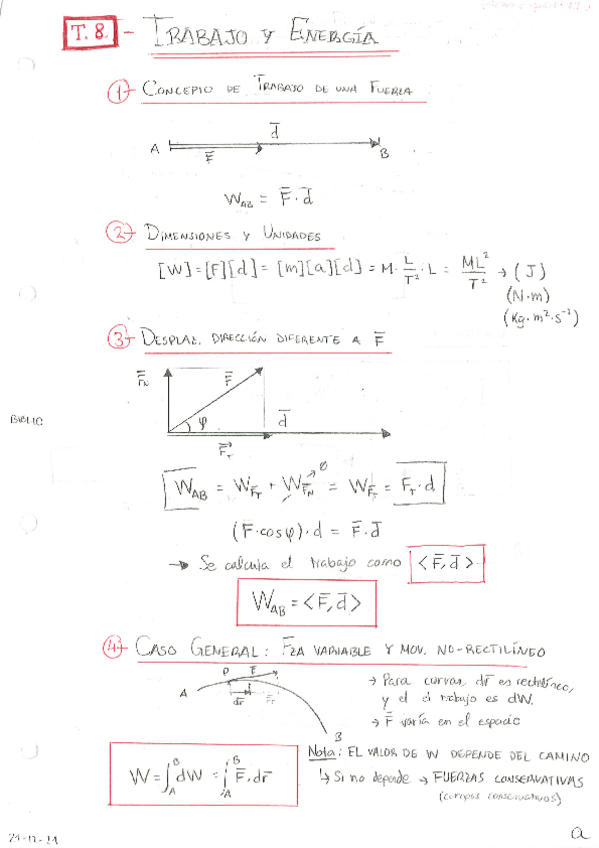 T.8. - TRABAJO Y ENERGÍA
1- CONCEPTO DE TRABAJO DE UNA FUERZA
d̄
A F̄ B
W_AB = F̄·d̄
2- DIMENSIONES Y UNIDADES
[W]=[F][d]= [m][a][d] = M·L/T²·L = ML²/T² → (J)
(N·m)
(Kg·m²·s⁻²)
3- DESPLAZ. DIRECCIÓN DIFERENTE A F̄
F̄_N F̄
φ d̄
F̄_T
BIBLIO
W_AB = W_F̄T + W_F̄N → 0 = W_F̄T = F_T·d
(F·cosφ)·d = F̄·d̄
→ Se calcula el trabajo como <F̄,d̄>
W_AB = <F̄,d̄>
4- CASO GENERAL: FZA VARIABLE Y MOV. NO-RECTILÍNEO
P F̄
A dr̄ B
→ Para curvas dr̄ es rectilíneo,
y el trabajo es dW.
→ F̄ varía en el espacio
Nota: EL VALOR DE W DEPENDE DEL CAMINO
W = ∫_A^B dW = ∫_A^B F̄·dr̄
↳ Si no depende → FUERZAS CONSERVATIVAS
(campos conservativos)
a